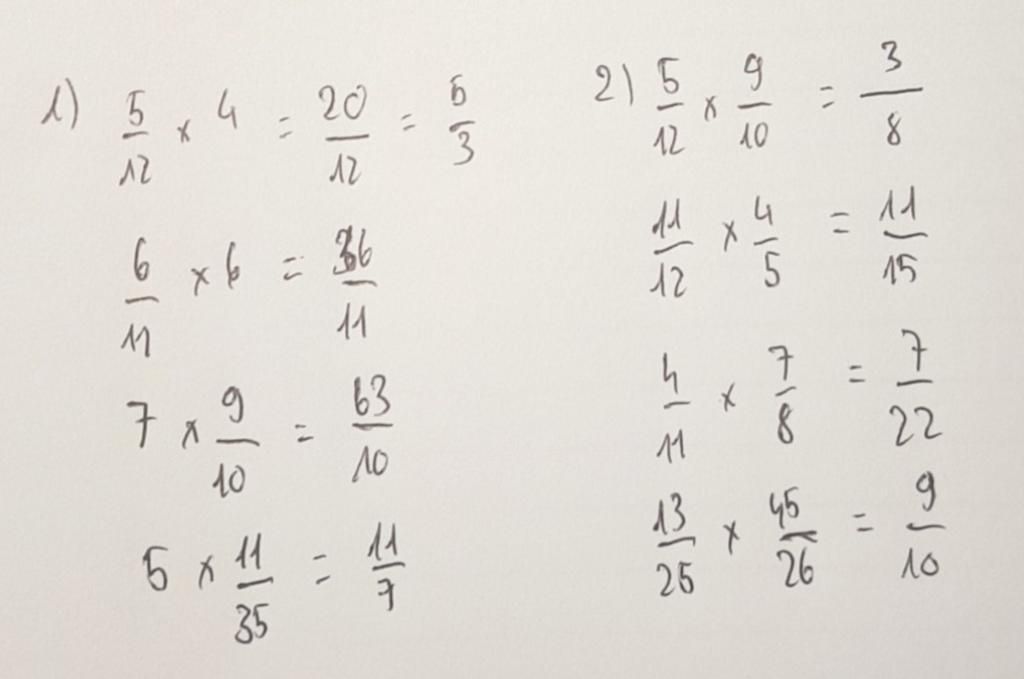 1) 5/12 × 4 = 20/12 = 5/3
6/11 × 6 = 36/11
7 × 9/10 = 63/10
5 × 11/35 = 11/7
2) 5/12 × 9/10 = 3/8
11/12 × 4/5 = 11/15
4/11 × 7/8 = 7/22
13/25 × 45/26 = 9/10